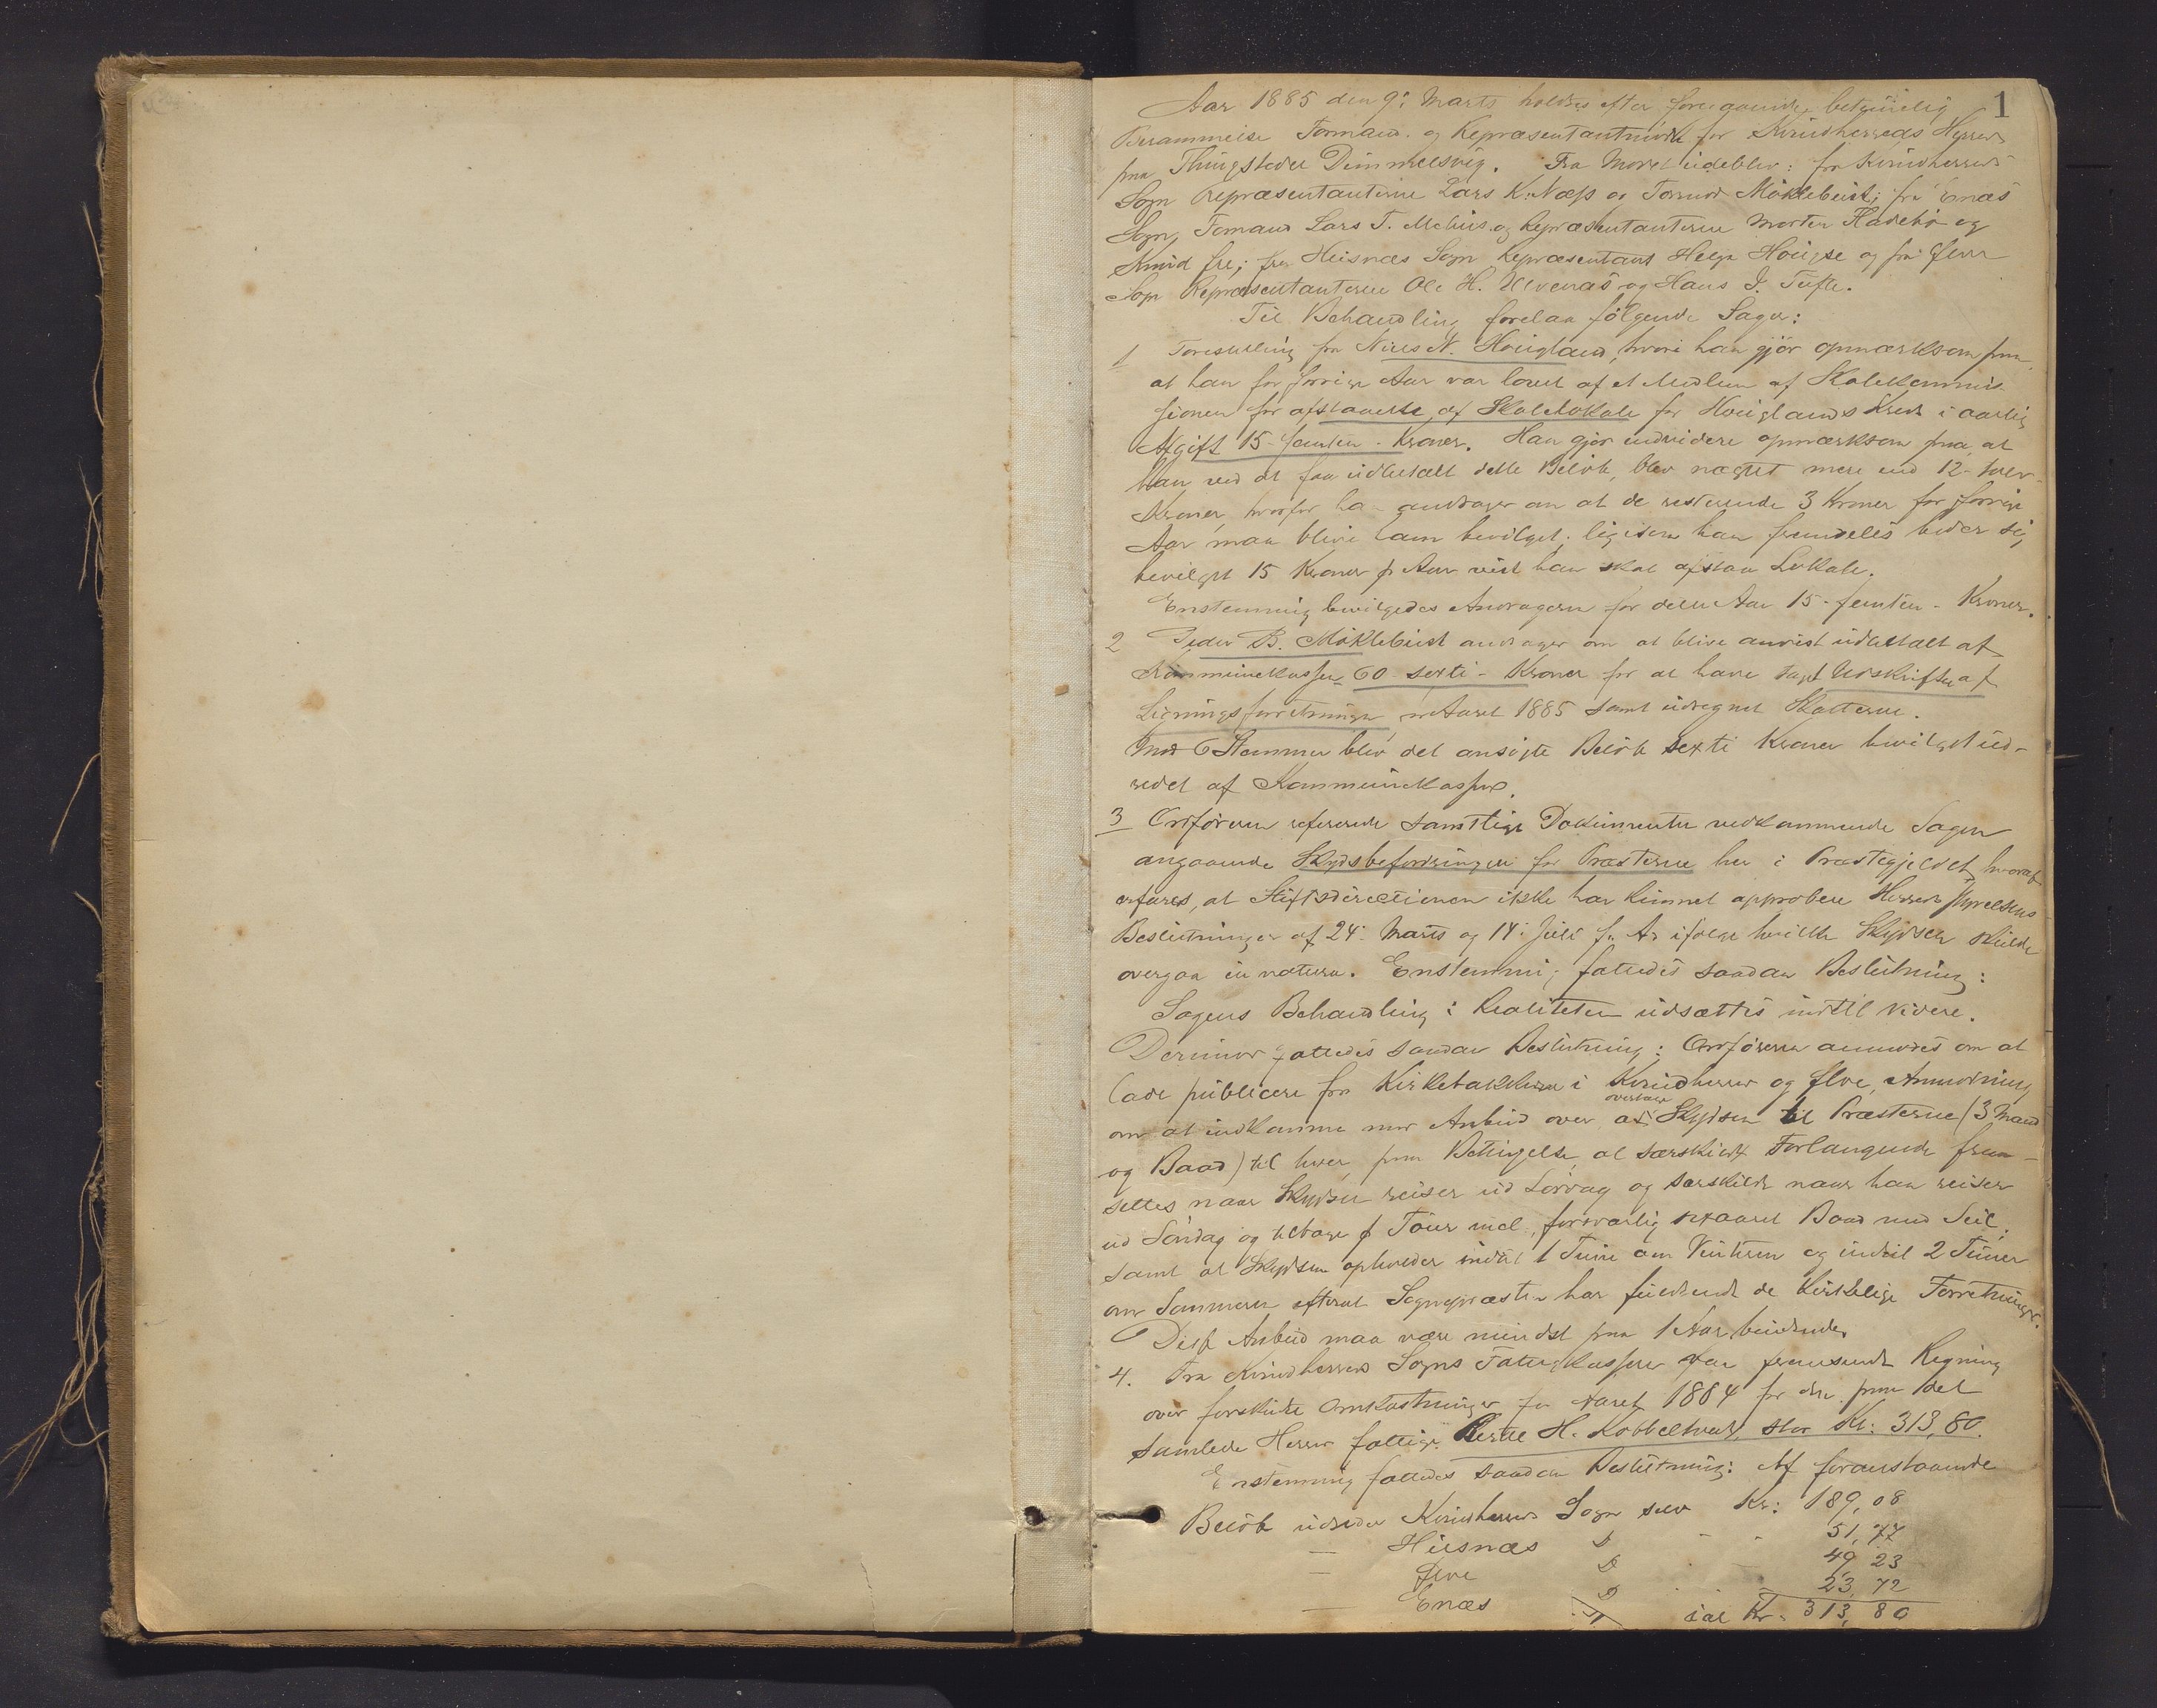 1
Aar 1885 den 9: Marts holdtes efter foregaaende betimelig
Berammelse Formand. og Repræsentantmøde for Kvindherreds Herred
paa Thingstedet Dimmelsvig. Fra Mødet udeblev: fra Kvindherreds
Sogn Repræsentanterne Lars K. Næss og Tormod Möklebust; fra Enæs
Sogn, Formand Lars T. Mehus. og Repræsentanterne Morten Hadebø og
Knud fre; fra Husnæs Sogn Repræsentant Helge Hougse og fra Ølve
Sogn Repræsentanterne Ole H. Ulvenæs og Hans J. Tufte.
Til Behandling forelaa følgende Sager:
1 Forestilling fra Niels N. Hougland, hvori han gjör opmærksom paa
at han for forrige Aar var lovet af et Medlem af Skolekommis
sionen for afstaaelse af Skolelokale for Houglands Kreds i aarlig
Afgift 15 - femten - Kroner. Han gjör endvidere opmærksom paa, at
han ved at faa udbetalt dette Beløb, blev nægtet mere end 12 - tolv -
Kroner, hvorfor ha- andrager om at de resterende 3 Kroner for forrige
Aar maa blive ham bevilget, ligesom han fremdeles beder sig
bevilget 15 Kroner p Aar vist han skal afstaa Lokale.
Enstemmig bevilgedes Andrageren for dette Aar 15 - femten - Kroner.
2 Peder B. Möklebust andrager om at blive anvist udbetalt af
Kommunekassen 60 - sexti - Kroner for at have taget Udskrifter af
Ligningsforretningen for Aaret 1885 samt udregnet Skatterne.
Mod 6 Stemmer blev det ansögte Beløb sexti Kroner bevilget ud-
redet af Kommunekassen.
3 Ordföreren refererede samtlige Dokumenter vedkommende Sagen
angaaende Skydsbefordringen for Præsterne her i Præstegjeldet, hvoraf
erfares, at Stiftsdirectionen ikke har kunnet approbere Herredsstyrelsens
Beslutninger af 24: Marts og 14: Juli f. A. ifølge hvilke Skydsen skulde
overgaa in natura. Enstemmig fattedes saadan Beslutning:
Sagens Behandling i Realiteten udsættes indtil videre.
Derimod fattedes saadan Beslutning: Ordföreren anmodes om at
lade publicere fra Kirkebakkerne i Kvindherred og Ølve, Anmodning
om at indkomme med Anbud over at overtage Skydsen til Præsterne (3 Mand
og Baad) til hver paa Betingelse at særskilt Forlangende frem-
settes naar Skydsen reiser ud Lørdag og særskilt naar han reiser
ud Søndag og tilbage p Tour incl. forsvarlig sexaaret Baad med Seil,
samt at Skydsen opholder indtil 1 Time om Vinteren og indtil 2 Timer
om Sommeren efterat Sognepræsten har fuldendt de kirkelige Forretninger.
Disse Anbud maa være mindst paa 1 Aar bindende.
4. Fra Kvindherreds Sogns Fattigkasse var fremsendt Regning
over forskudte Omkostninger for Aaret 1884 for den paa det
samlede Herred fattige H. Kobbeltvedt, stor Kr: 313,80.
Enstemmig fattedes saadan Beslutning: Af foranstaaende
Beløb udreder Kvindherreds Sogn selv Kr: 189,08
— Husnæs D - - 51,77
— Ølve D - - 49,23
— Enæs D - - 23,72
ial Kr. 313,80